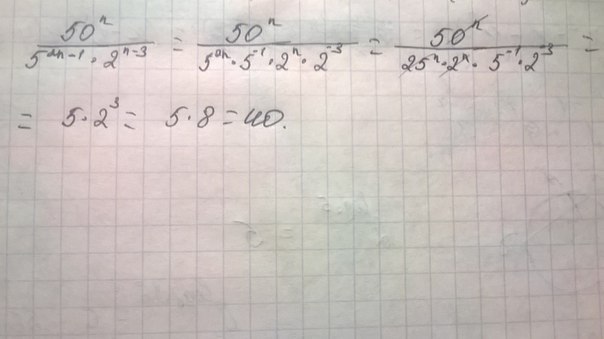 50ⁿ / (5²ⁿ⁻¹ · 2ⁿ⁻³) = 50ⁿ / (5²ⁿ · 5⁻¹ · 2ⁿ · 2⁻³) = 50ⁿ / (25ⁿ · 2ⁿ · 5⁻¹ · 2⁻³) =
= 5 · 2³ = 5 · 8 = 40.